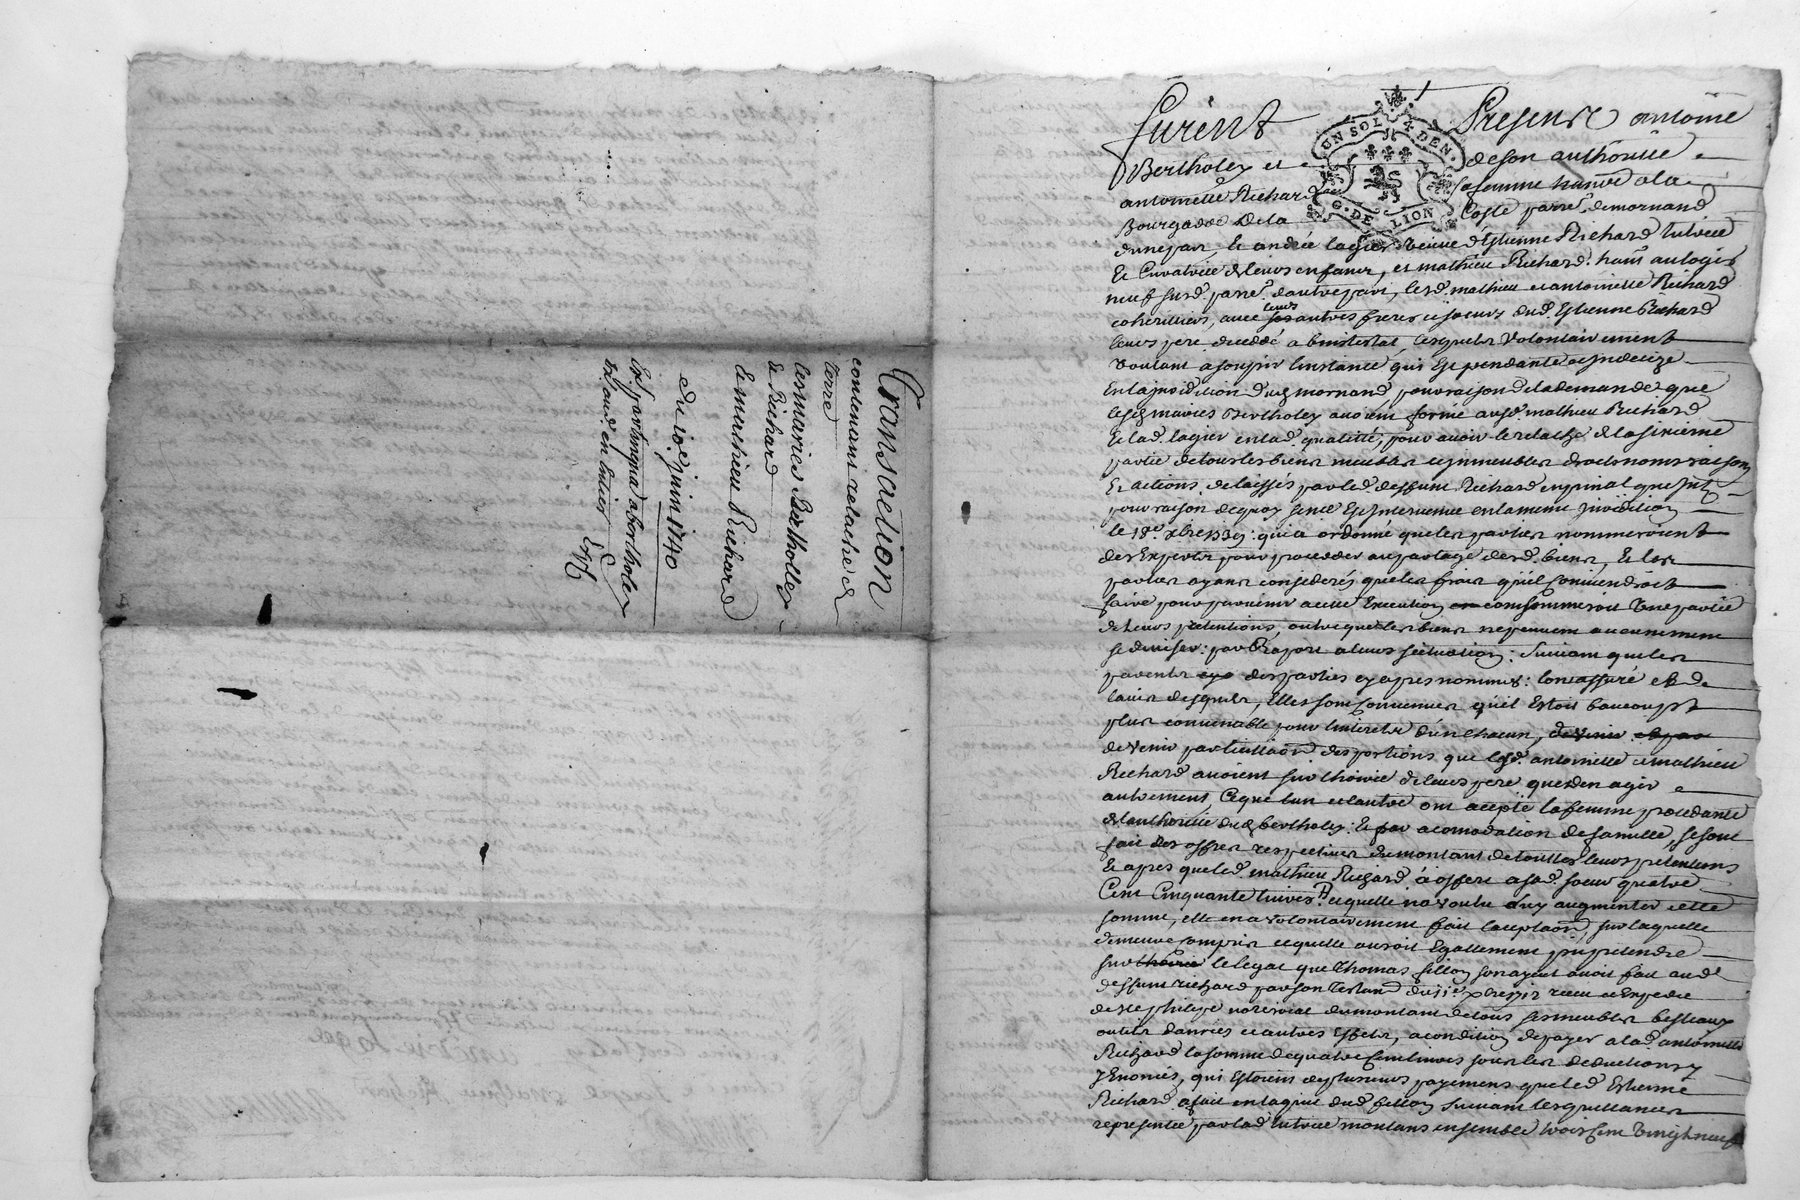 Transaction
contenant relache de
terre
les mariés Bertholley
& Richard
& mathieu Richard
du 10e juin 1740
Exp. en Entier
UN SOL 4 DEN.
G. DE LION
Furent Presents antoine
Bertholey et de son authorité
antoinette Richard sa femme hants a la
Bourgade De la Coste parre. de mornand
d'une part, Et andrée lagier veuve d'Estienne Richard tutrice
Et Curatrice de leurs enfants, et mathieu Richard hant au logis
neuf surd. parre. d'autre part, lesd. mathieu et antoinette Richard
coheritiers, avec leurs autres freres et soeurs dud. Estienne Richard
leurs pere decedé abintestat, lesquels volontairement
voulant assoupir l'instance qui Est pendante et indecize
En la jurisdition dud. mornand pour raison de la demande que
lesd. mariés Bertholey avoient formé aud. mathieu Richard
Et lad. lagier en lad. qualitté, pour avoir le relache de la sixieme
partie de tous les biens meubles et immeubles droits noms raisons
Et actions delaissés par led. deffunt Richard
pour raison de quoy sent. Est intervenue en la meme jurisdition
le 18e xbre 1739: qui a ordonné que les parties nommeroient
des Experts pour proceder au partage desd. biens, Et les
parties ayant considerés que les frais qu'il conviendroit
faire pour parvenir a cette Execution consommeroit une partie
de leurs pretentions, outre que les biens ne peuvent aucunement
se diviser par Raport a leurs scituation: Suivant que les
parents des parties cy apres nommés: l'ont assuré et de
l'avis desquels, Elles sont convenues qu'il Estoit beaucoupt
plus convenable pour l'interets d'un chacun,
de venir des portions que lesd. antoinette et mathieu
Richard avoient sur l'hoirie de leurs pere que d'en agir
autrement, Ce que l'un et l'autre ont accepté la femme procedante
de l'authorité dud. bertholey: Et par acomodation de famille, se sont
fait des offres respectives du montant de touttes leurs pretentions
Et apres que led. mathieu Richard a offert a sad. soeur quatre
Cent Cinquante livres, et qu'elle n'a voulu augmenter cette
somme, elle en a volontairement fait l'aceptaon, sur laquelle
demeure compris ce qu'elle auroit Egallement pu pretendre
sur le legat que Thomas fillon son ayeul avoit fait aud.
deffunt richard par son Testant du 11e xbre 1712 receu et Expedié
de Me philipe notre royal du montant de tous ses meubles bestiaux
outils danrées et autres Effets, a condition de payer a lad. antoinette
Richard la somme de quatre Cent livres sous les deductions y
Enoncés, qui Estoient de plusieurs payemens que led. Estienne
Richard a fait en l'aquit dud. fillon suivant les quittances
representée par lad. tutrice montans ensemble trois Cent vingt neuf